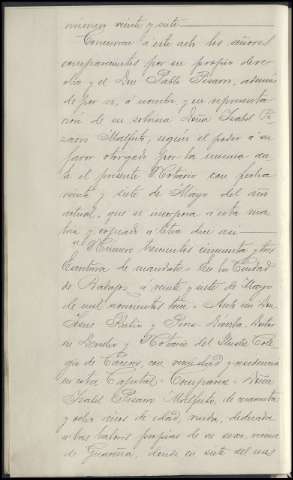 número veinte y siete
Concurren á este acto los señores
comparecientes por su propio dere-
cho y el Don Pablo Pizarro, además
de por sí, á nombre y en representa-
cion de su sobrina Doña Isabel Pi-
zarro Malfeito, según el poder á su
favor otorgado por la misma an-
te el presente Notario con fecha
veinte y siete de Mayo del año
actual, que se incorpora á esta ma-
triz y copiado á letra dice así:
"Número trescientos cincuenta y tres
Escritura de mandato = En la Ciudad
de Badajoz á veinte y siete de Mayo
de mil novecientos tres = Ante mí Don
Rubio y Doctor
en Derecho y Notario del Ilustre Cole-
gio de Cáceres, con vecindad y residencia
en esta Capital = Comparece = Doña
Isabel Pizarro Malfeito, de cuarenta
y ocho años de edad, viuda, dedicada
á las labores propias de su sexo, vecina
de Guareña, donde en siete del mes